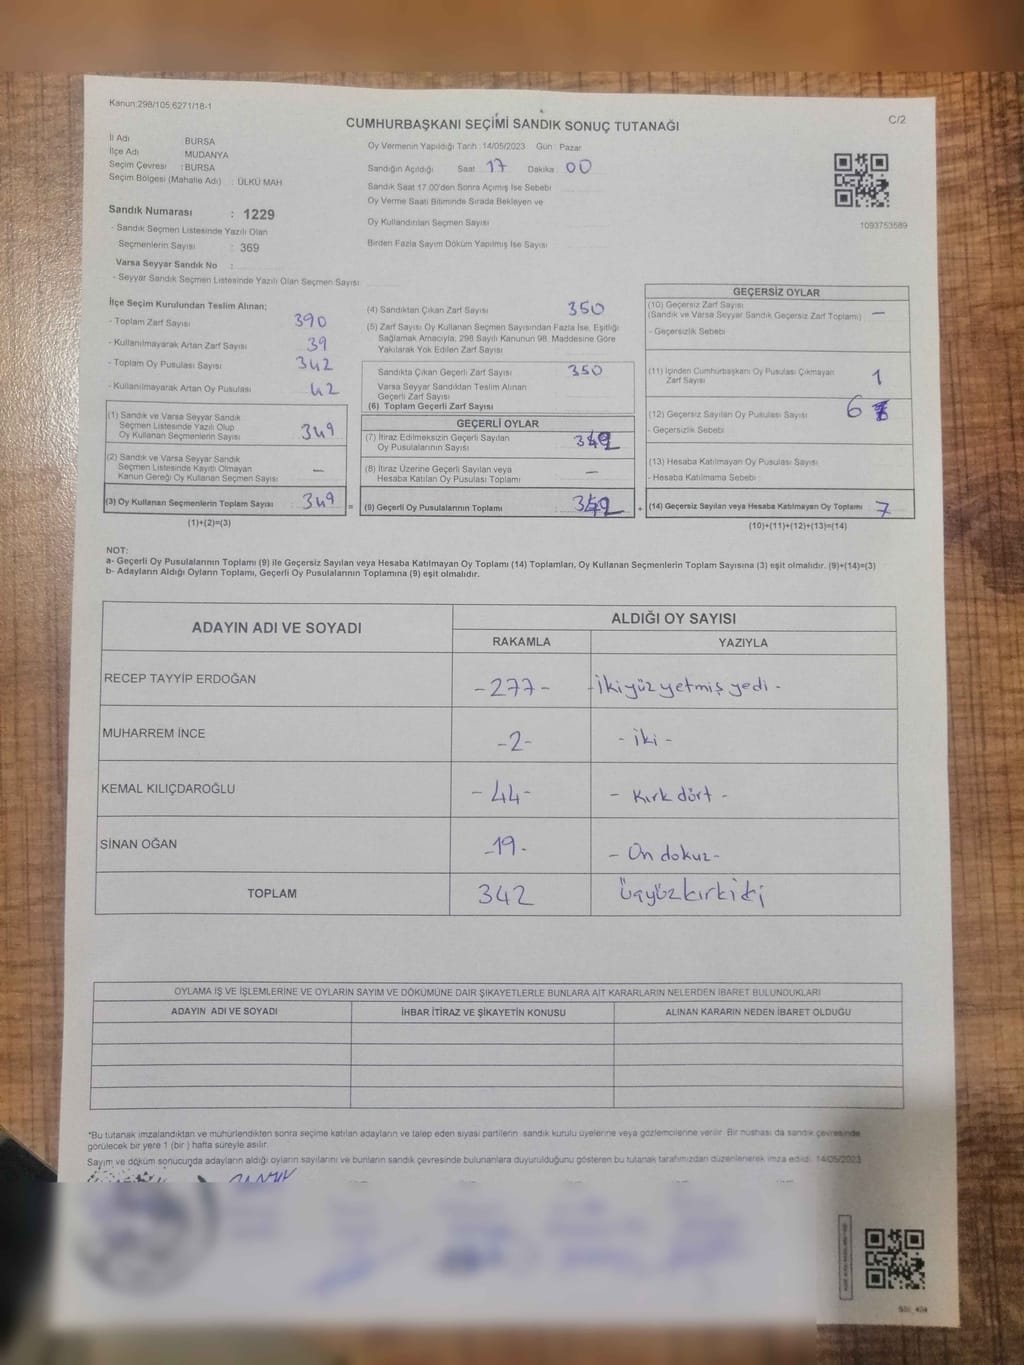 Kanun:298/105;6271/18-1
C/2
CUMHURBAŞKANI SEÇİMİ SANDIK SONUÇ TUTANAĞI
İl Adı BURSA
İlçe Adı MUDANYA
Seçim Çevresi : BURSA
Seçim Bölgesi (Mahalle Adı) : ÜLKÜ MAH.
Oy Vermenin Yapıldığı Tarih : 14/05/2023 Gün : Pazar
Sandığın Açıldığı Saat 17 Dakika 00
Sandık Saat 17.00'den Sonra Açılmış İse Sebebi
Oy Verme Saati Bitiminde Sırada Bekleyen ve
Oy Kullandırılan Seçmen Sayısı
Birden Fazla Sayım Döküm Yapılmış İse Sayısı
1093753589
Sandık Numarası : 1229
- Sandık Seçmen Listesinde Yazılı Olan
Seçmenlerin Sayısı : 369
Varsa Seyyar Sandık No :
- Seyyar Sandık Seçmen Listesinde Yazılı Olan Seçmen Sayısı
İlçe Seçim Kurulundan Teslim Alınan;
- Toplam Zarf Sayısı 390
- Kullanılmayarak Artan Zarf Sayısı 39
- Toplam Oy Pusulası Sayısı 342
- Kullanılmayarak Artan Oy Pusulası 42
(1) Sandık ve Varsa Seyyar Sandık
Seçmen Listesinde Yazılı Olup
Oy Kullanan Seçmenlerin Sayısı 349
(2) Sandık ve Varsa Seyyar Sandık
Seçmen Listesinde Kayıtlı Olmayan
Kanun Gereği Oy Kullanan Seçmen Sayısı —
(3) Oy Kullanan Seçmenlerin Toplam Sayısı 349 =
(1)+(2)=(3)
(4) Sandıktan Çıkan Zarf Sayısı 350
(5) Zarf Sayısı Oy Kullanan Seçmen Sayısından Fazla İse, Eşitliği
Sağlamak Amacıyla, 298 Sayılı Kanunun 98. Maddesine Göre
Yakılarak Yok Edilen Zarf Sayısı
Sandıkta Çıkan Geçerli Zarf Sayısı 350
Varsa Seyyar Sandıktan Teslim Alınan
Geçerli Zarf Sayısı
(6) Toplam Geçerli Zarf Sayısı
GEÇERLİ OYLAR
(7) İtiraz Edilmeksizin Geçerli Sayılan
Oy Pusulalarının Sayısı 342
(8) İtiraz Üzerine Geçerli Sayılan veya
Hesaba Katılan Oy Pusulası Toplamı —
(9) Geçerli Oy Pusulalarının Toplamı 342 +
GEÇERSİZ OYLAR
(10) Geçersiz Zarf Sayısı
(Sandık ve Varsa Seyyar Sandık Geçersiz Zarf Toplamı) —
- Geçersizlik Sebebi
(11) İçinden Cumhurbaşkanı Oy Pusulası Çıkmayan
Zarf Sayısı 1
(12) Geçersiz Sayılan Oy Pusulası Sayısı 6
- Geçersizlik Sebebi
(13) Hesaba Katılmayan Oy Pusulası Sayısı
- Hesaba Katılmama Sebebi
(14) Geçersiz Sayılan veya Hesaba Katılmayan Oy Toplamı 7
(10)+(11)+(12)+(13)=(14)
NOT:
a- Geçerli Oy Pusulalarının Toplamı (9) ile Geçersiz Sayılan veya Hesaba Katılmayan Oy Toplamı (14) Toplamları, Oy Kullanan Seçmenlerin Toplam Sayısına (3) eşit olmalıdır. (9)+(14)=(3)
b- Adayların Aldığı Oyların Toplamı, Geçerli Oy Pusulalarının Toplamına (9) eşit olmalıdır.
ADAYIN ADI VE SOYADI
ALDIĞI OY SAYISI
RAKAMLA YAZIYLA
RECEP TAYYİP ERDOĞAN -277- -İkiyüz yetmiş yedi-
MUHARREM İNCE -2- -iki-
KEMAL KILIÇDAROĞLU -44- -Kırk dört-
SİNAN OĞAN -19- -On dokuz-
TOPLAM 342 üçyüzkırkiki
OYLAMA İŞ VE İŞLEMLERİNE VE OYLARIN SAYIM VE DÖKÜMÜNE DAİR ŞİKAYETLERLE BUNLARA AİT KARARLARIN NELERDEN İBARET BULUNDUKLARI
ADAYIN ADI VE SOYADI İHBAR İTİRAZ VE ŞİKAYETİN KONUSU ALINAN KARARIN NEDEN İBARET OLDUĞU
*Bu tutanak imzalandıktan ve mühürlendikten sonra seçime katılan adayların ve talep eden siyasi partilerin sandık kurulu üyelerine veya gözlemcilerine verilir. Bir nüshası da sandık çevresinde
görülecek bir yere 1 (bir) hafta süreyle asılır.
Sayım ve döküm sonucunda adayların aldığı oyların sayılarını ve bunların sandık çevresinde bulunanlara duyurulduğunu gösteren bu tutanak tarafımızdan düzenlenerek imza edildi. 14/05/2023